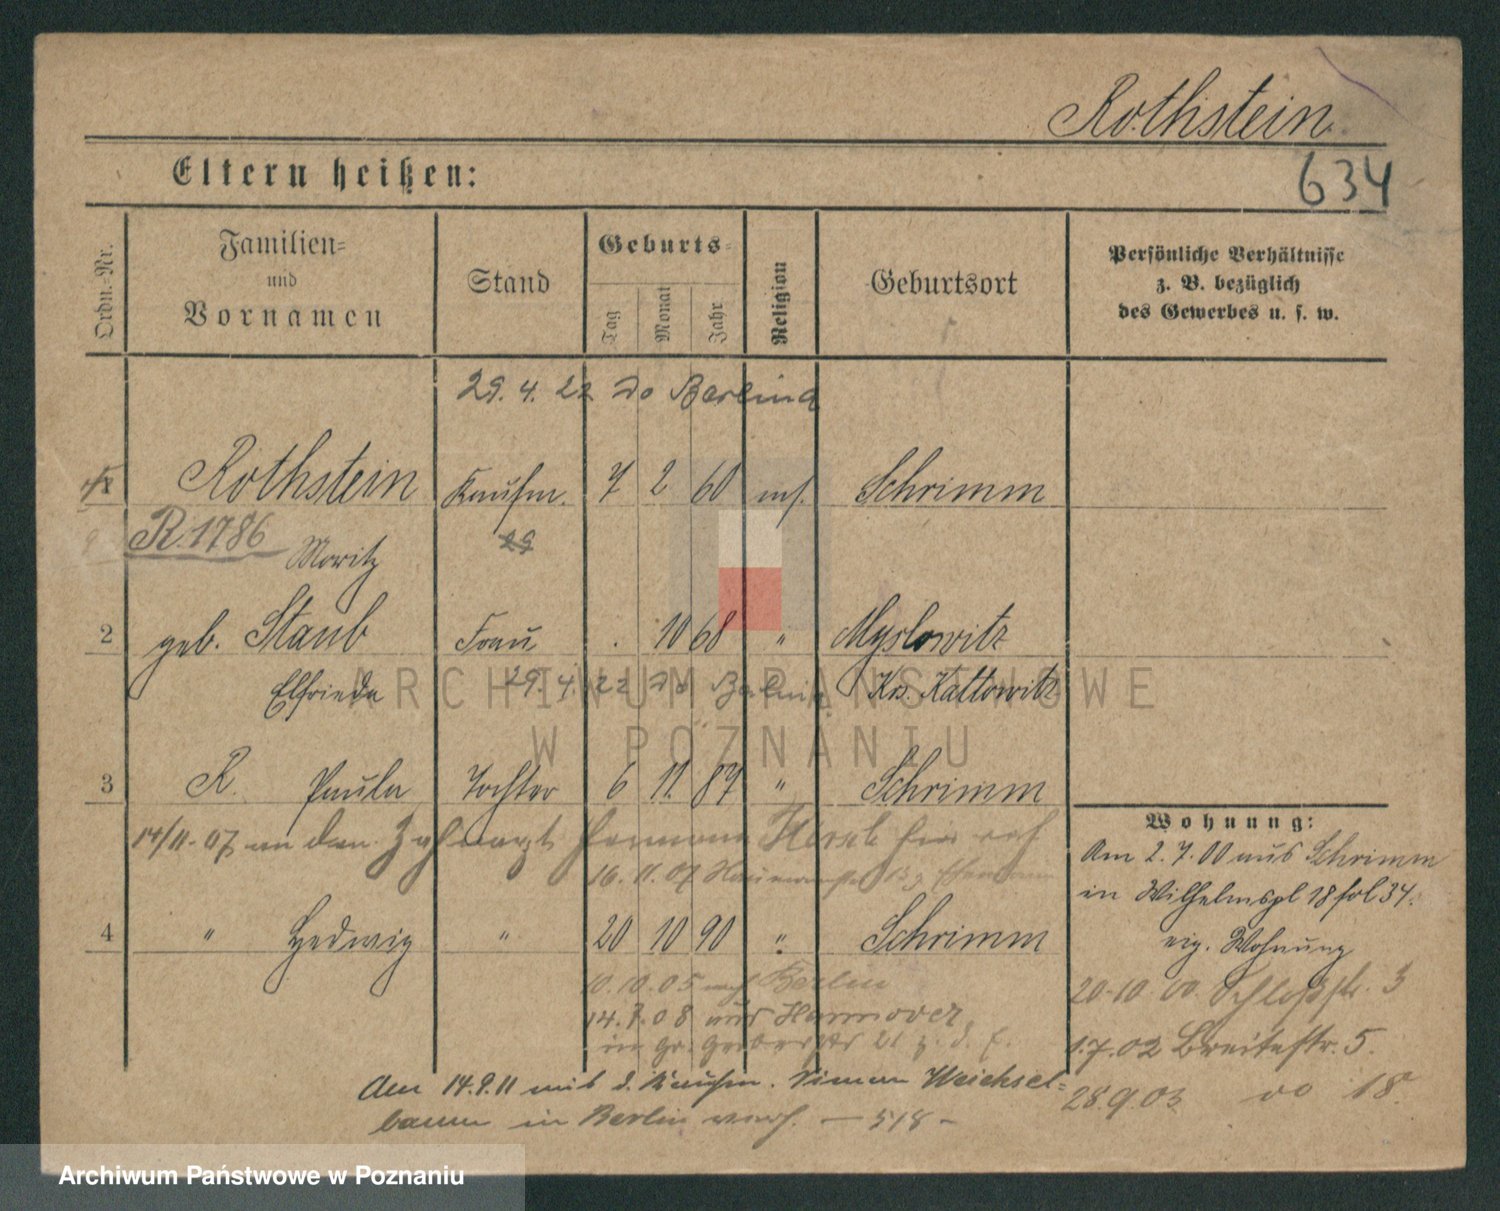 Rothstein
634
Eltern heißen:
Ordn.-Nr.
Familien- und Vornamen
Stand
Geburts-
Tag
Monat
Jahr
Religion
Geburtsort
Persönliche Verhältnisse
z. B. bezüglich
des Gewerbes u. s. w.
29. 4. 22 do Berlin
1 Rothstein Kaufm. 7 2 60 mos. Schrimm
R. 1786 Moritz 29
2 geb. Staub Frau . 10 68 " Myslowitz
Elfriede 29. 4. 22 do Berlin Krs. Kattowitz
3 R. Paula Tochter 6 11 87 " Schrimm
14/11.07 an den Zahnarzt Hermann hier verh
16. 11. 07
4 " Hedwig " 20 10 90 " Schrimm
10.10.05 nach Berlin
14.7.08 aus Hannover
in Gr. Gerberstr 21 z. d. E.
Am 14.9.11 mit d. Kaufm. Simon Weichsel-
baum in Berlin verh. — 518 —
Wohnung:
Am 2.7.00 aus Schrimm
in Wilhelmspl 18 fol 34.
eig. Wohnung
20.10.00 Schloßstr. 3
1.7.02 Breitestr. 5.
28.9.03 do 18.
ARCHIWUM PAŃSTWOWE
W POZNANIU
Archiwum Państwowe w Poznaniu